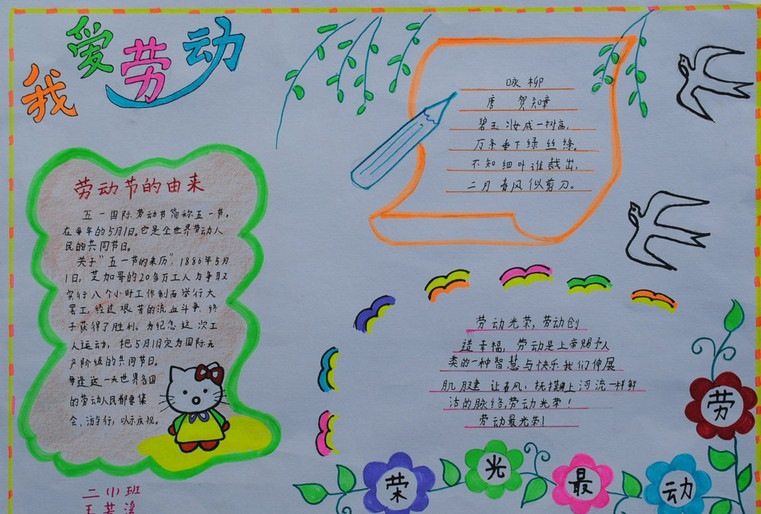 我爱劳动
劳动节的由来
五一国际劳动节简称五一节,
在每年的5月1日。它是全世界劳动人
民的共同节日。
关于"五一节的来历":1886年5月
1日,芝加哥的20多万工人为争取
实行八个小时工作制而举行大
罢工,经过艰苦的流血斗争,终
于获得了胜利。为纪念这次工
人运动,把5月1日定为国际无
产阶级的共同节日。
每逢这一天世界各国
的劳动人民都要集
会、游行,以示庆祝。
二小班
王
咏柳
唐 贺知章
碧玉妆成一树高,
万条垂下绿丝绦。
不知细叶谁裁出,
二月春风似剪刀。
劳动光荣,劳动创
造幸福,劳动是上帝赐予人
类的一种智慧与快乐我们伸展
肌腱 让春风:抚摸脸上河流一样鲜
活的脉络,劳动光荣!
劳动最光荣!
劳
动
最
光
荣